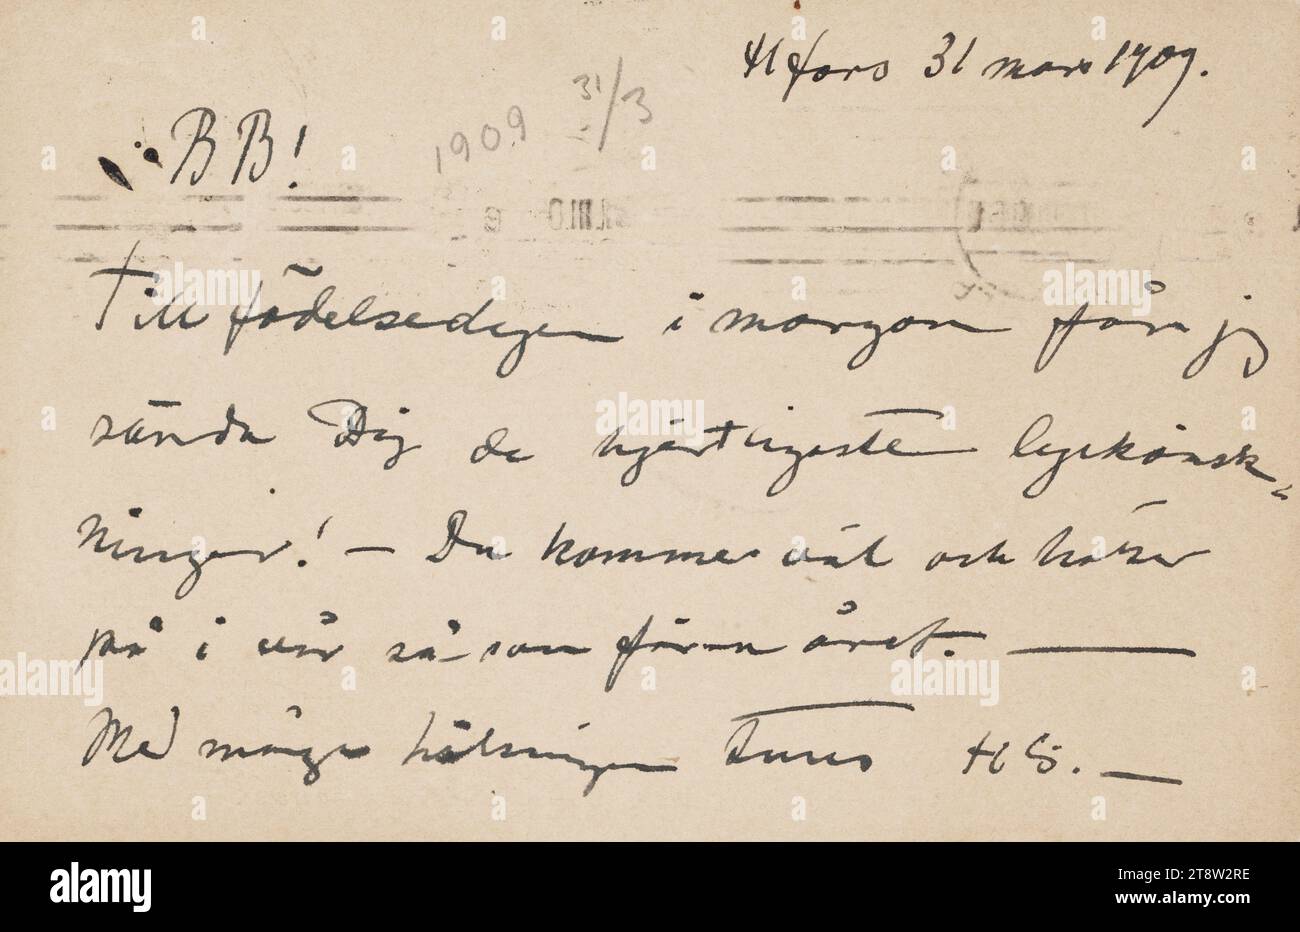 H fors 31 mars 1909.
1909 31/3
BB!
Till födelsedagen i morgon får jag
sända Dig de hjärtligaste lyckönsk-
ningar! — Du kommer väl och hälsar
på i vår såsom förra året. —
Med många hälsningar Tuus HG. —
alamy
Image ID: 2T8W2RE
www.alamy.com